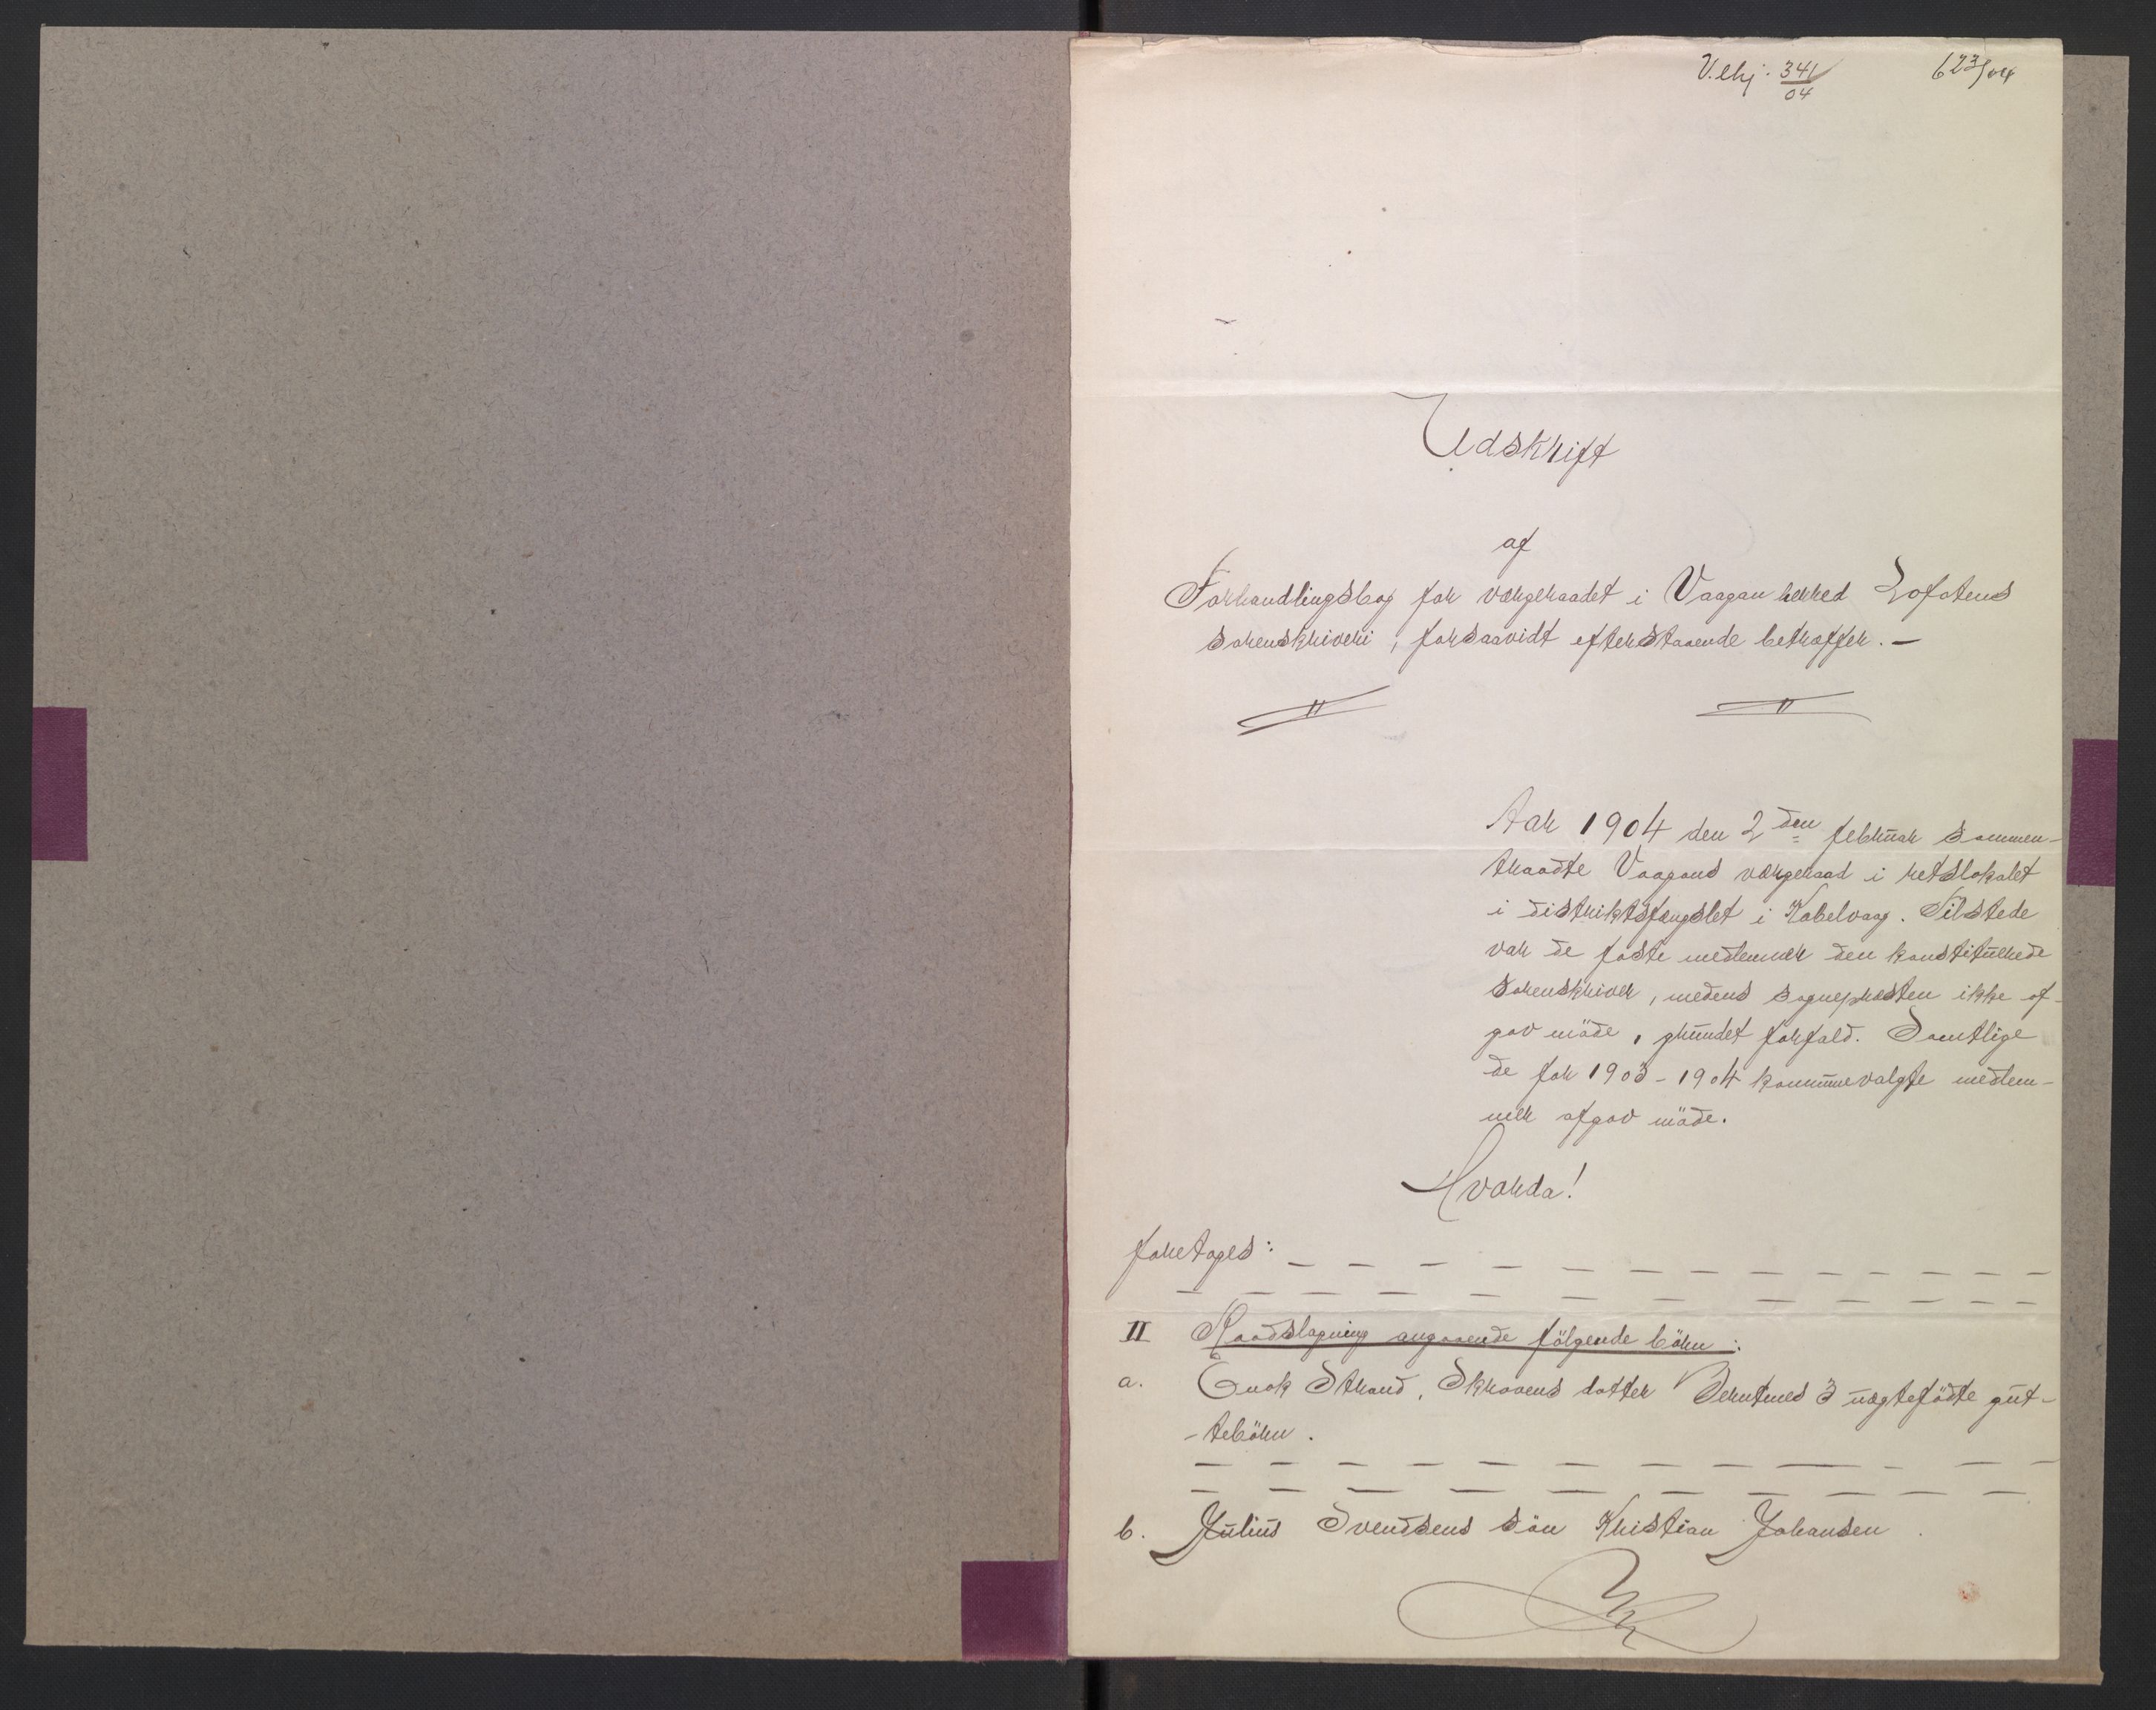 V.chj. 341/04 623/04
Udskrift
af
Forhandlingsbog for værgeraadet i Vaagan herred Lofotens
sorenskriveri, forsaavidt efterstaaende betræffer. —
Aar 1904 den 2den februar sammen-
traadte Vaagans værgeraad i retslokalet
i distriktsfængslet i Kabelvaag. Tilstede
var de faste medlemmer den konstituerede
sorenskriver, medens sognepræsten ikke af-
gav möde, grundet forfald. Samtlige
de for 1903-1904 kommunevalgte medlem-
mer afgav möde.
Hvorda!
foretages: — — — — — — — — — — — —
— — — — — — — — — — — —
II Raadslagning angaaende fölgende börn:
a. Enok Strand, Skrovens datter Berntines 3 uægtefödte gut-
-tebörn.
— — — — — — — — — — — —
— — — — — — — — — — —
b. Julius Svendsens sön Kristian Johansen.